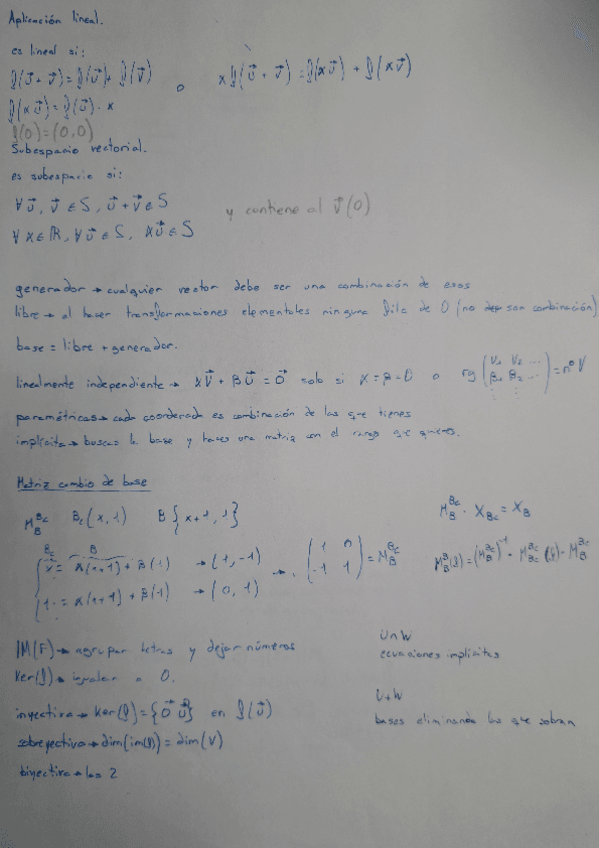 Aplicación lineal.
es lineal si:
f(u⃗ + v⃗) = f(u⃗) + f(v⃗) o α f(u⃗ + v⃗) = f(αu⃗) + f(αv⃗)
f(αu⃗) = f(u⃗) · α
f(0) = (0,0)
Subespacio vectorial.
es subespacio si:
∀ u⃗, v⃗ ∈ S, u⃗ + v⃗ ∈ S y contiene al v⃗(0)
∀ α ∈ ℝ, ∀ u⃗ ∈ S, αu⃗ ∈ S
generador → cualquier vector debe ser una combinación de esos
libre → al hacer transformaciones elementales ninguna fila de 0 (no son combinación)
base = libre + generador.
linealmente independiente → αv⃗ + βu⃗ = 0⃗ solo si α = β = 0 o rg (V₁ V₂ ... = nº V
β₁ β₂ ...)
paramétricas → cada coordenada es combinación de las que tienes
implícita → buscas la base y haces una matriz con el rango que quieres.
Matriz cambio de base
M_B^Bc Bc(x,1) B{x+1,1} M_B^Bc · X_Bc = X_B
Bc B
x = α(x+1) + β(1) → (1,-1) → (1 0
-1 1) = M_B^Bc
1 = α(x+1) + β(1) → (0,1)
M_B^B(f) = (M_B^Bc)⁻¹ · M_Bc^Bc(f) · M_B^Bc
IM(F) → agrupar letras y dejar números
Ker(f) → igualar a 0.
inyectiva → Ker(f) = {0⃗} en f(u⃗)
sobreyectiva → dim(im(f)) = dim(V)
biyectiva → las 2
U∩W
ecuaciones implícitas
U+W
bases eliminando las que sobran